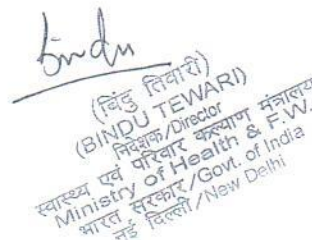 bindu
(बिंदु तिवारी)
(BINDU TEWARI)
निदेशक/Director
स्वास्थ्य एवं परिवार कल्याण मंत्रालय
Ministry of Health & F.W.
भारत सरकार/Govt. of India
नई दिल्ली/New Delhi